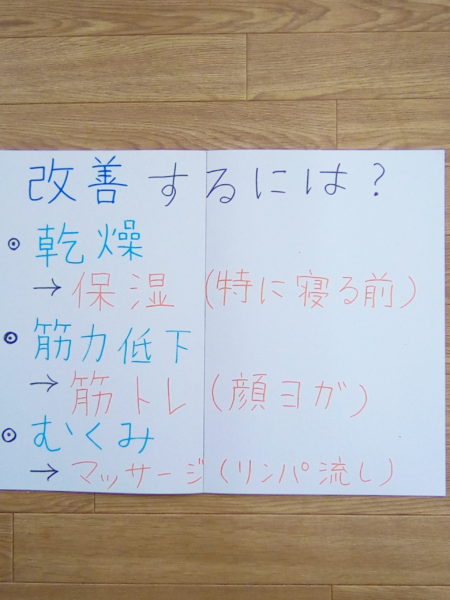 改善するには?
⊙ 乾燥
→ 保湿 (特に寝る前)
⊙ 筋力低下
→ 筋トレ (顔ヨガ)
⊙ むくみ
→ マッサージ (リンパ流し)